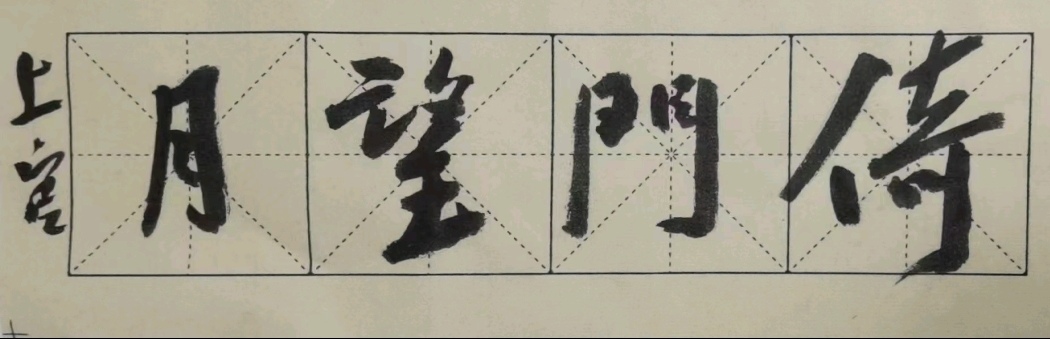 倚門望月
上官